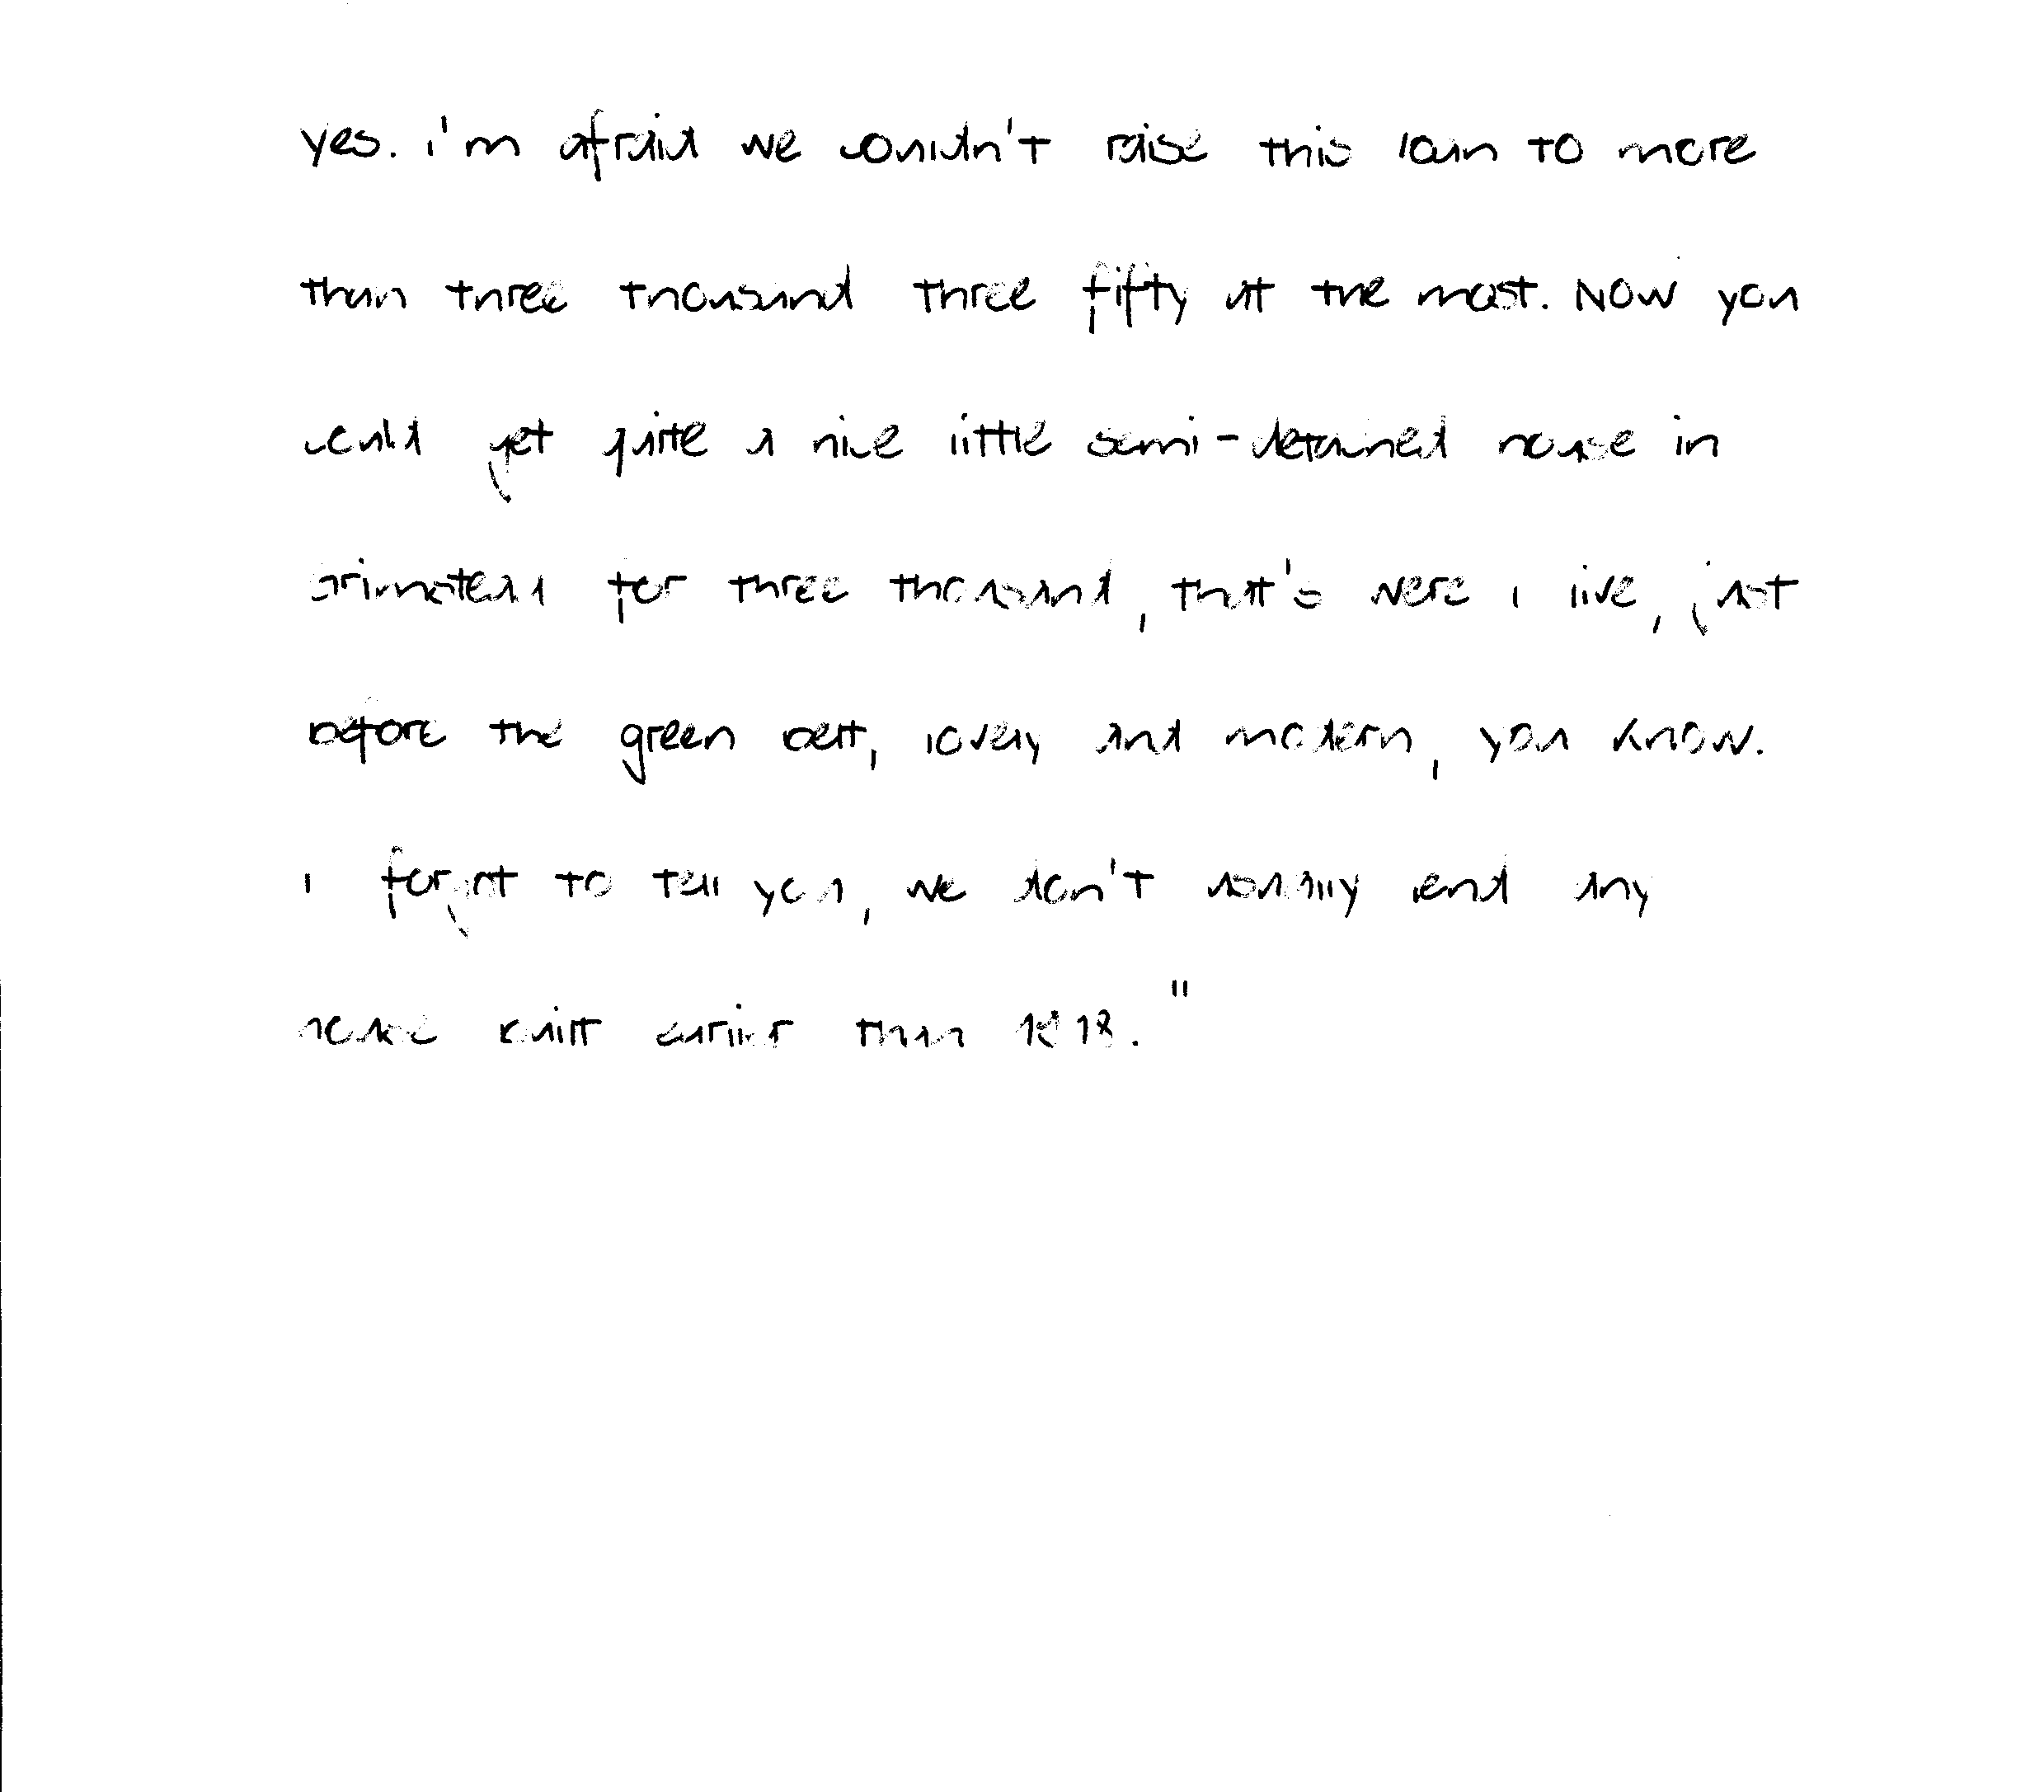 yes. I'm afraid we couldn't raise this loan to more
than three thousand three fifty at the most. Now you
could get quite a nice little semi-detained house in
for three thousand, that's were I live, just
before the green belt, lovely and modern, you know.
I forgot to tell you, we don't lend any
house built earlier than 1918."